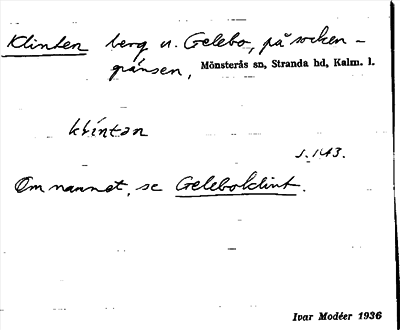 Klinten berg n. Gelebo, på socken-
gränsen, Mönsterås sn, Stranda hd, Kalm. l.
klìntən
s. 143.
Om namnet, se Geleboklint.
Ivar Modéer 1936